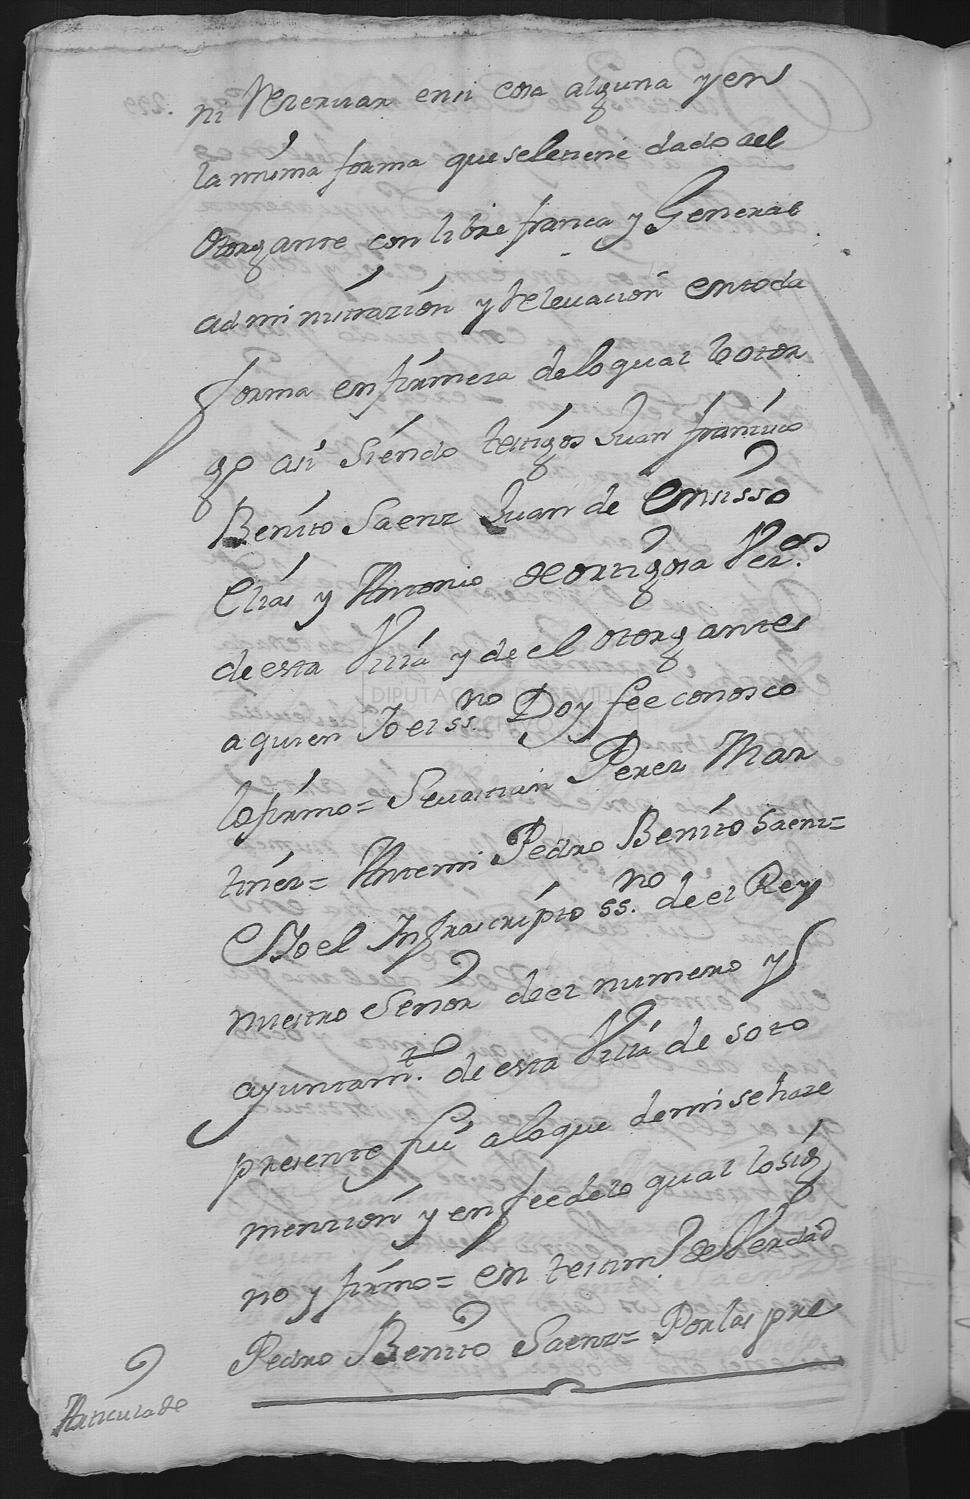 ni Reservar ensi cosa alguna yen
la misma forma queseletiene dado ael
Otorgante con libre franca y General
administrazión y Relevación entoda
forma enfirmeza delo qual looтor
gó así siendo testigos Juan franzisco
Benito Saenz Juan de
Elías y Antonio de ortigosa Vez.os
de esta Villa y de el otorgantes
a quien Yo el ss.no Doy fee conosco
lofirmo = Sevastian Perez Mar
tinez = Antemi Pedro Benito Saenz =
Yo el Infrascripto ss.no de el Rey
nuestro Señor deel numero y
ayuntam.to de esta Villa de soto
presente fuí aloque demi sehaze
menzion y enfeedelo qual losig
no y firmo = en testim.o de Verdad
Pedro Benito Saenz = Porlas pre
Articulade
DIPUTACIÓN DE SEVILLA